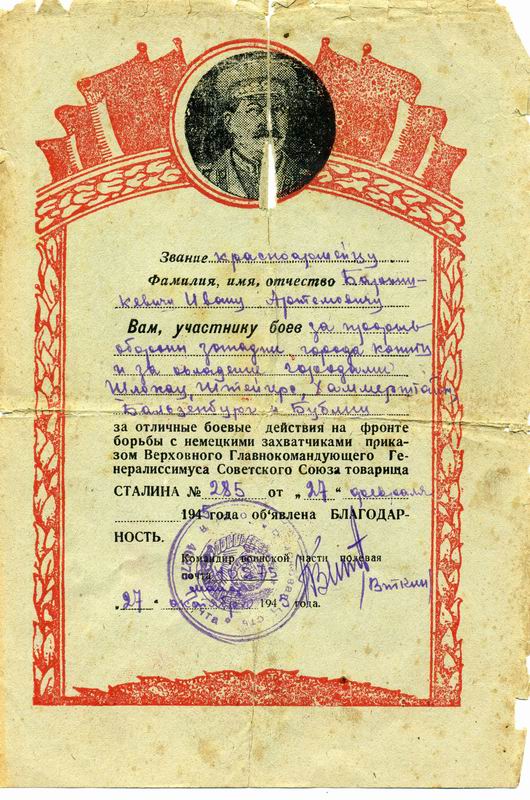 Звание красноармейцу
Фамилия, имя, отчество
кевичу Ивану Артемовичу
Вам, участнику боев за прорыв
обороны западнее города
и за овладение городами
Шлохау, Хаммерштайн
Бальденбург и Бублиц
за отличные боевые действия на фронте
борьбы с немецкими захватчиками прика-
зом Верховного Главнокомандующего Ге-
нералиссимуса Советского Союза товарища
СТАЛИНА № 285 от „27“ февраля
1945 года об‘явлена БЛАГОДАР-
НОСТЬ.
Командир воинской части полевая
почта
/Виткин/
„27“ 1945 года.